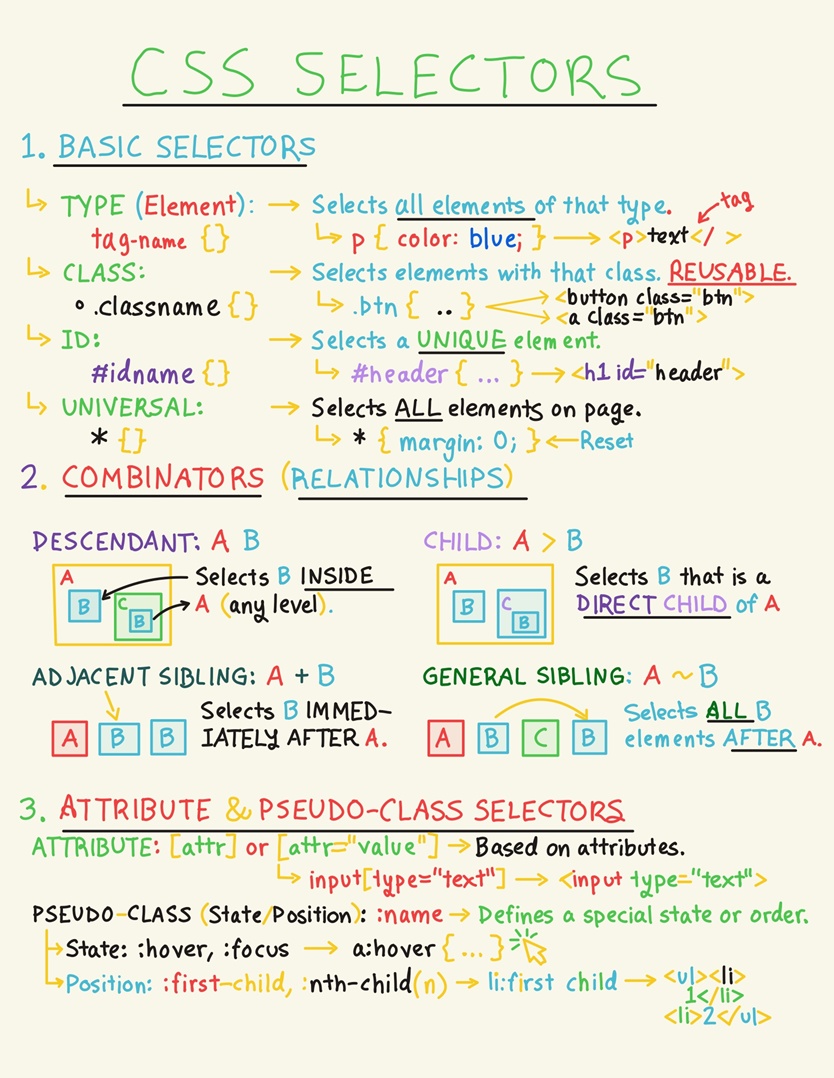 CSS SELECTORS
1. BASIC SELECTORS
↳ TYPE (Element): → Selects all elements of that type.
tag
tag-name {} ↳ p { color: blue; } → <p>text</ >
↳ CLASS: → Selects elements with that class. REUSABLE.
∘ .classname {} ↳ .btn { .. } <button class="btn">
<a class="btn">
↳ ID: → Selects a UNIQUE element.
#idname {} ↳ #header { ... } → <h1 id="header">
↳ UNIVERSAL: → Selects ALL elements on page.
* {} ↳ * { margin: 0; } ← Reset
2. COMBINATORS (RELATIONSHIPS)
DESCENDANT: A B
A
B
C
B
Selects B INSIDE
A (any level).
CHILD: A > B
A
B
C
B
Selects B that is a
DIRECT CHILD of A
ADJACENT SIBLING: A + B
A B B
Selects B IMMED-
IATELY AFTER A.
GENERAL SIBLING: A ~ B
A B C B
Selects ALL B
elements AFTER A.
3. ATTRIBUTE & PSEUDO-CLASS SELECTORS
ATTRIBUTE: [attr] or [attr="value"] → Based on attributes.
↳ input[type="text"] → <input type="text">
PSEUDO-CLASS (State/Position): :name → Defines a special state or order.
→ State: :hover, :focus → a:hover { ... }
↳ Position: :first-child, :nth-child(n) → li:first child → <ul><li>
1</li>
<li>2</ul>